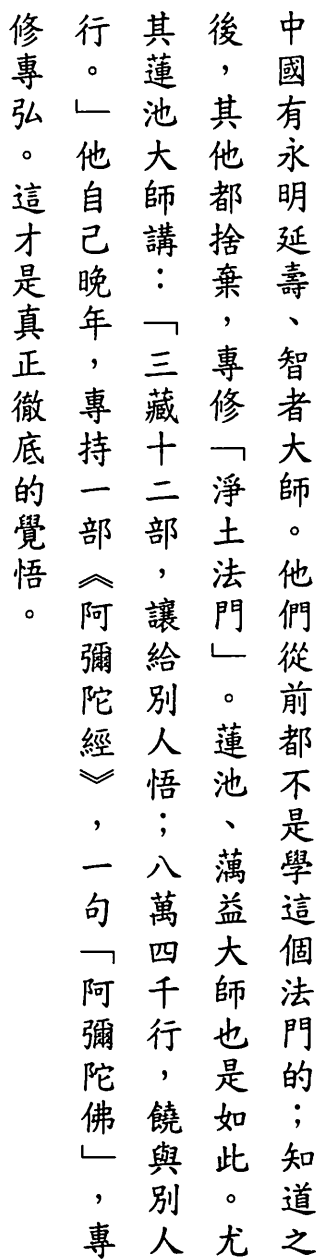 中國有永明延壽、智者大師。他們從前都不是學這個法門的；知道之
後，其他都捨棄，專修「淨土法門」。蓮池、蕅益大師也是如此。尤
其蓮池大師講：「三藏十二部，讓給別人悟；八萬四千行，饒與別人
行。」他自己晚年，專持一部《阿彌陀經》，一句「阿彌陀佛」，專
修專弘。這才是真正徹底的覺悟。